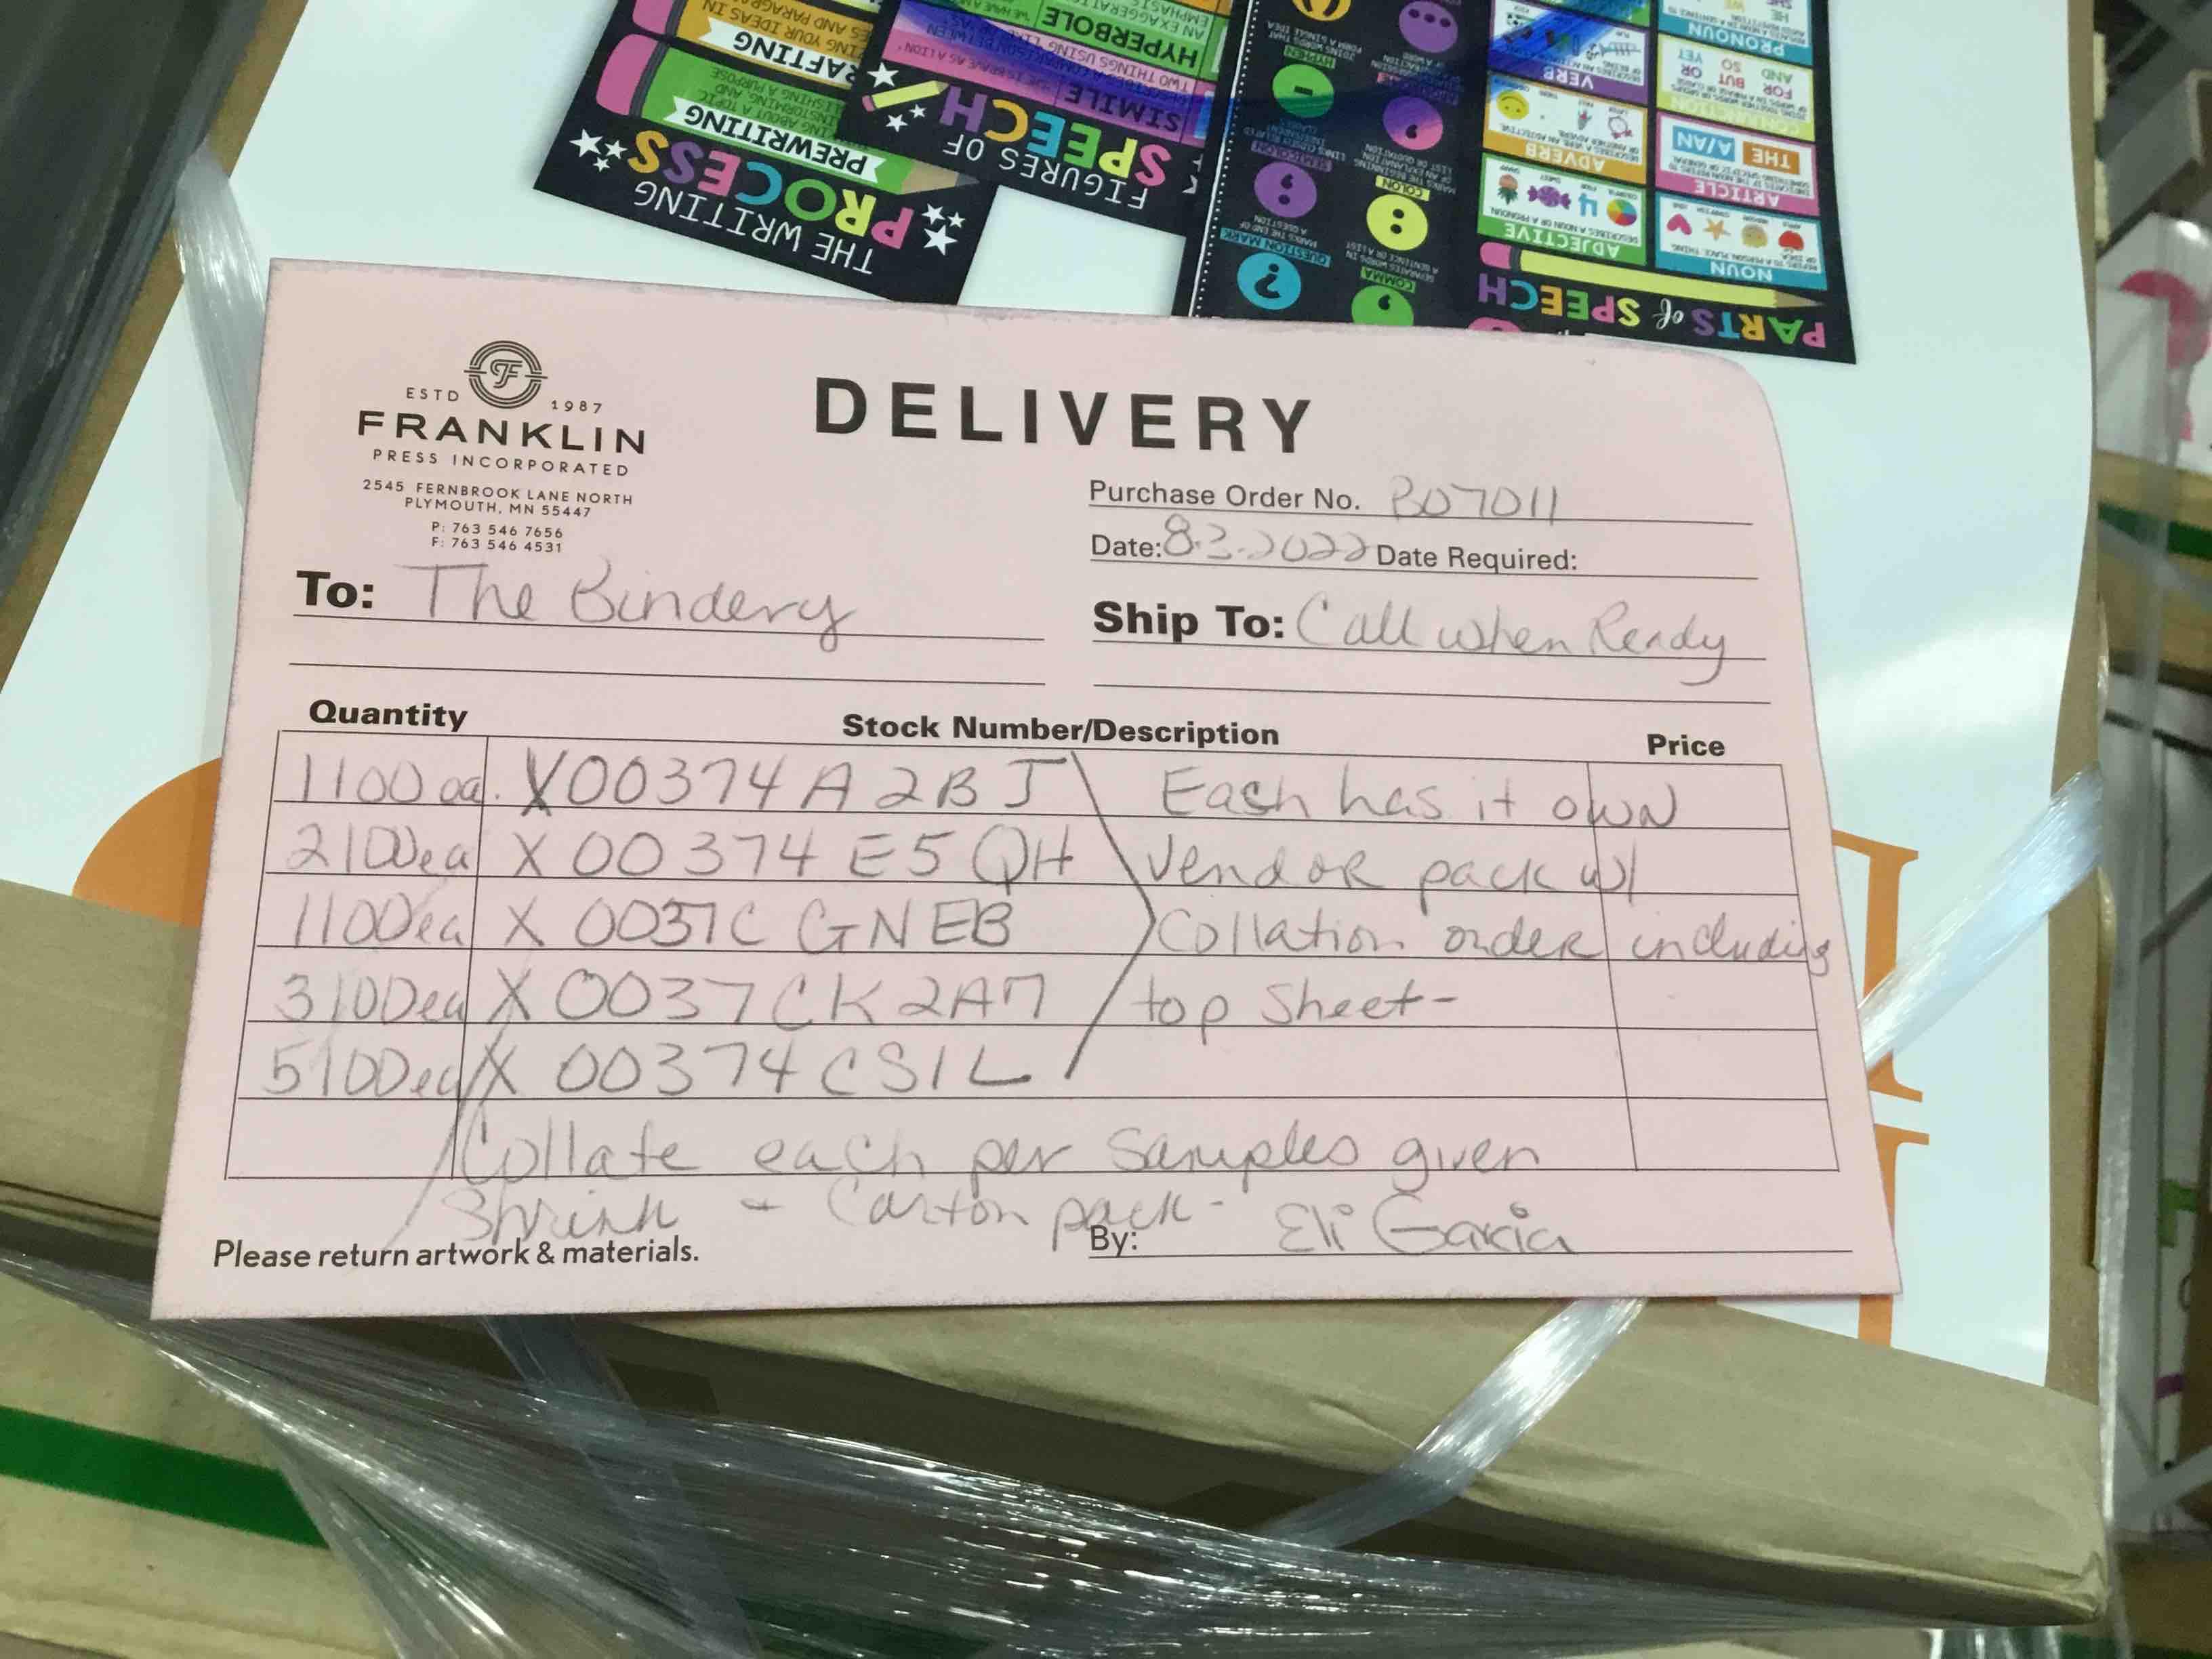 THE WRITING
PROCESS
PREWRITING
FIGURES OF
SPEECH
SIMILE
TWO THINGS USING
HYPERBOLE
PARTS of SPEECH
NOUN
ADJECTIVE
ARTICLE
THE A/AN
ADVERB
VERB
FOR BUT OR
AND SO YET
PRONOUN
COMMA
QUESTION MARK
COLON
SEMICOLON
HYPHEN
ESTD 1987
FRANKLIN
PRESS INCORPORATED
2545 FERNBROOK LANE NORTH
PLYMOUTH, MN 55447
P: 763 546 7656
F: 763 546 4531
DELIVERY
Purchase Order No. BO7011
Date: 8.3.2022 Date Required:
To: The Bindery
Ship To: Call when Ready
Quantity Stock Number/Description Price
1100 ea. X00374A2BJ Each has it own
2100ea X00374E5QH Vendor pack w/
1100ea X0037CGNEB Collation order including
3100ea X0037CK2A7 top Sheet-
5100ea X00374CS1L
Collate each per Samples given
Shrink - Carton pack -
Please return artwork & materials.
By: Eli Garcia